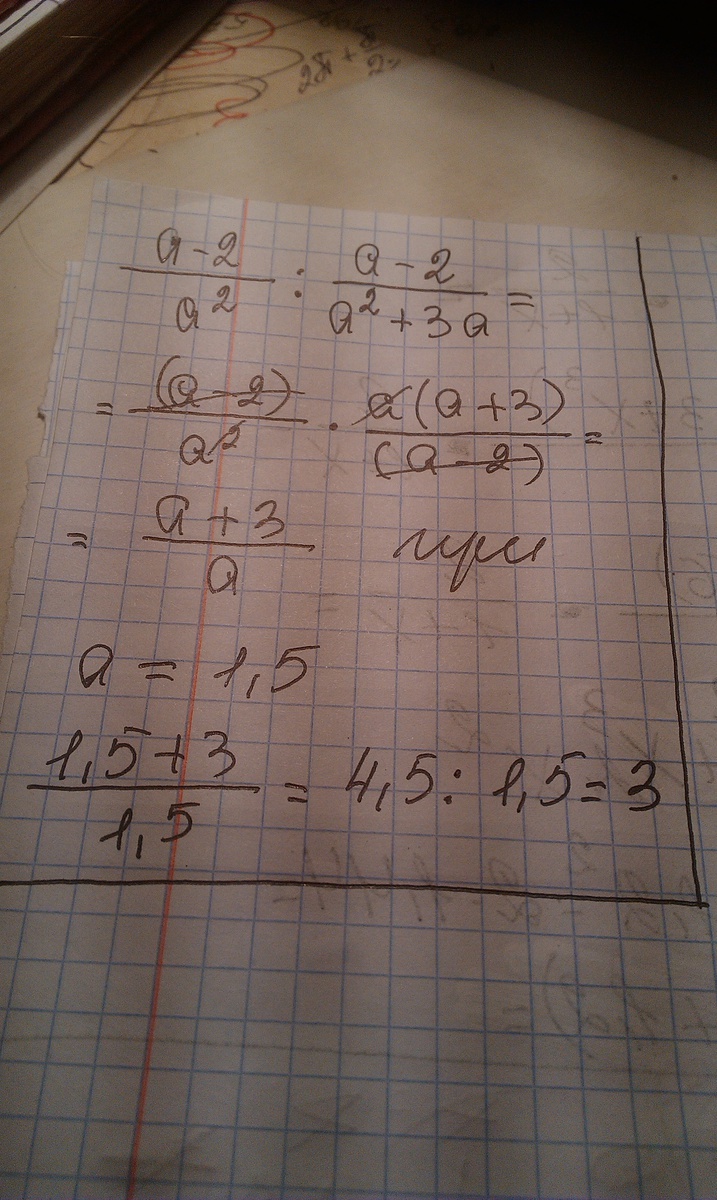 2π +
(a-2)/a² : (a-2)/(a²+3a) =
= (a-2)/a² · a(a+3)/(a-2) =
= (a+3)/a при
a = 1,5
(1,5+3)/1,5 = 4,5 : 1,5 = 3